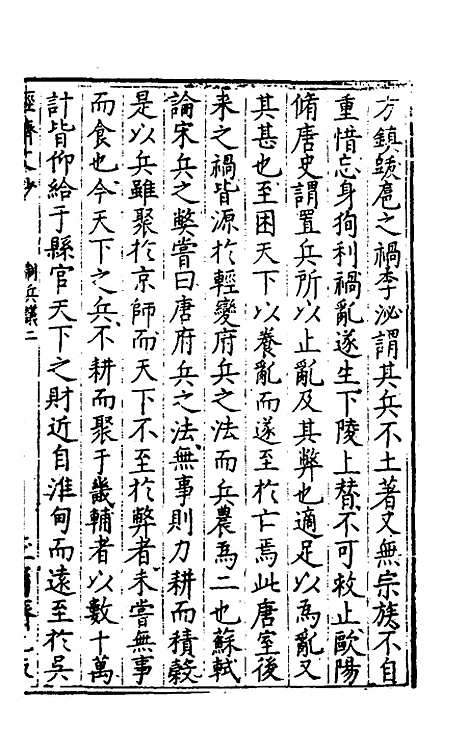 方鎮跋扈之禍李泌謂其兵不土著又無宗族不自
重惜忘身狥利禍亂遂生下陵上替不可救止歐陽
脩唐史謂置兵所以止亂及其弊也適足以爲亂又
其甚也至困天下以養亂而遂至於亡焉此唐室後
来之禍皆源於輕變府兵之法而兵農爲二也蘇軾
論宋兵之獘嘗曰唐府兵之法無事則力耕而積穀
是以兵雖聚於京師而天下不至於弊者未嘗無事
而食也今天下之兵不耕而聚于畿輔者以數十萬
計皆仰給于縣官天下之財近自淮甸而遠至於吳
經濟文
制兵議二